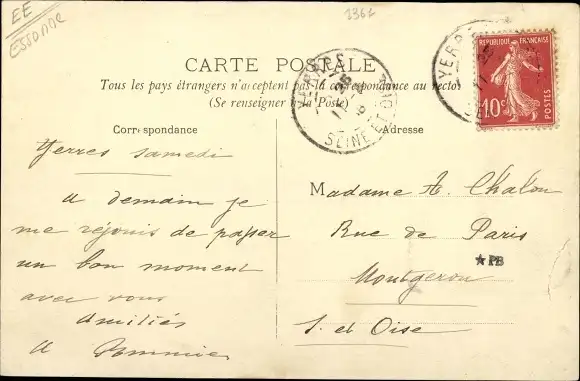 EE
ESSONNE
2367
CARTE POSTALE
Tous les pays étrangers n'acceptent pas la correspondance au recto
(Se renseigner à la Poste)
Correspondance
Adresse
YERRES
SEINE-ET-OISE
YERR
REPUBLIQUE FRANÇAISE
10c
POSTES
Yerres samedi
A demain je
me réjouis de passer
un bon moment
avec vous
Amitiés
A Pommier
Madame A. Chalon
Rue de Paris
Montgeron
S. et Oise
★PB